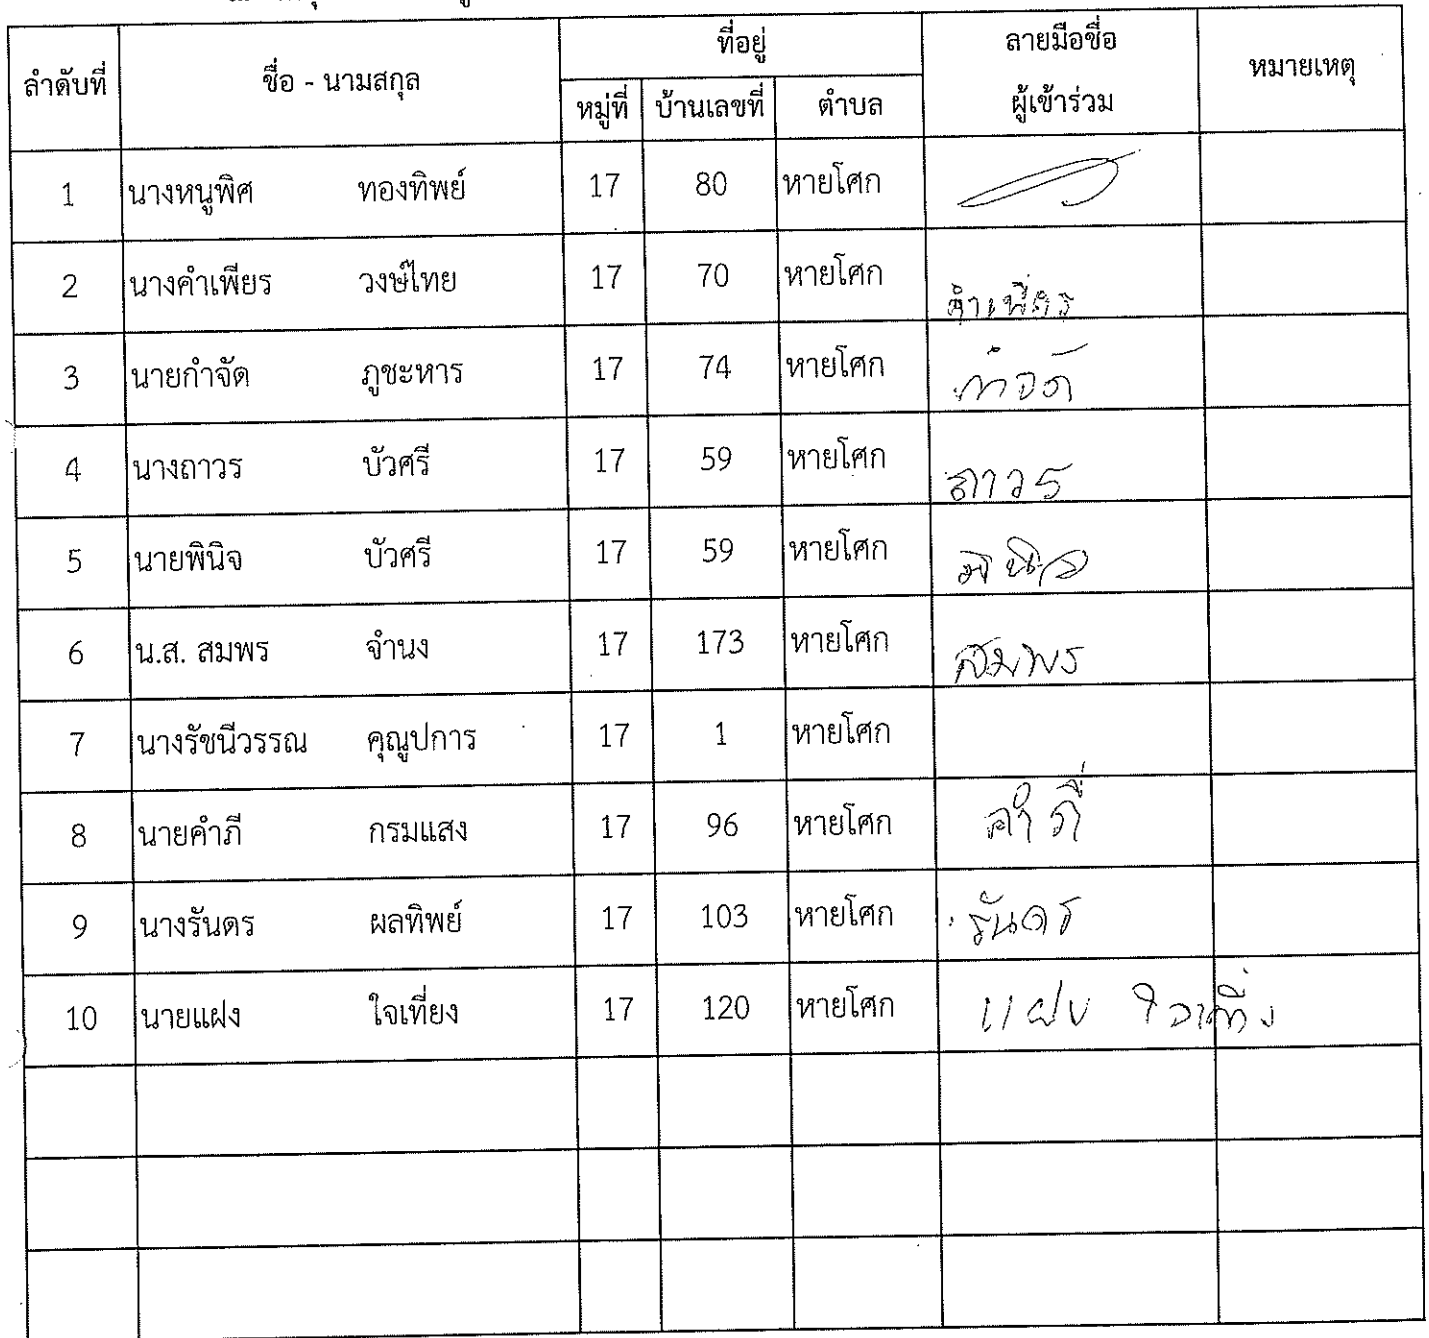 ลำดับที่ ชื่อ - นามสกุล ที่อยู่ ลายมือชื่อ ผู้เข้าร่วม หมายเหตุ
หมู่ที่ บ้านเลขที่ ตำบล
1 นางหนูพิศ ทองทิพย์ 17 80 หายโศก
2 นางคำเพียร วงษ์ไทย 17 70 หายโศก คำเพียร
3 นายกำจัด ภูชะหาร 17 74 หายโศก กำจัด
4 นางถาวร บัวศรี 17 59 หายโศก ถาวร
5 นายพินิจ บัวศรี 17 59 หายโศก พินิจ
6 น.ส. สมพร จำนง 17 173 หายโศก สมพร
7 นางรัชนีวรรณ คุณูปการ 17 1 หายโศก
8 นายคำภี กรมแสง 17 96 หายโศก คำภี
9 นางรันดร ผลทิพย์ 17 103 หายโศก รันดร
10 นายแฝง ใจเที่ยง 17 120 หายโศก แฝง